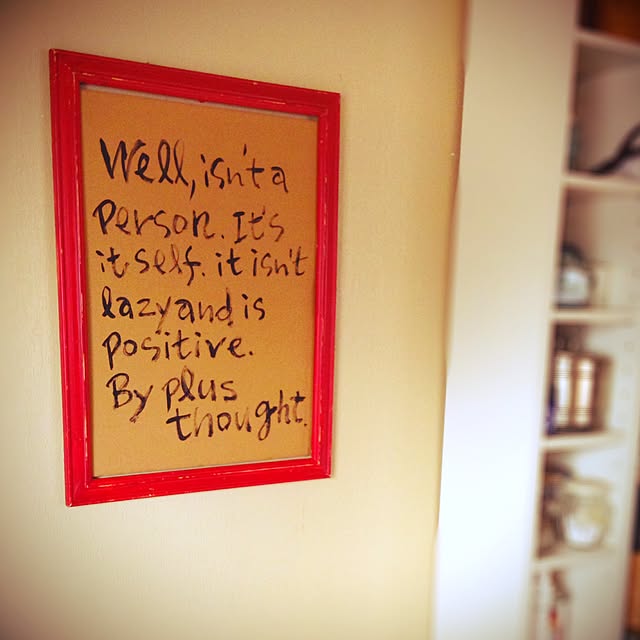 Well, isn't a
Person. It's
itself. it isn't
lazy and is
positive.
By plus
thought.